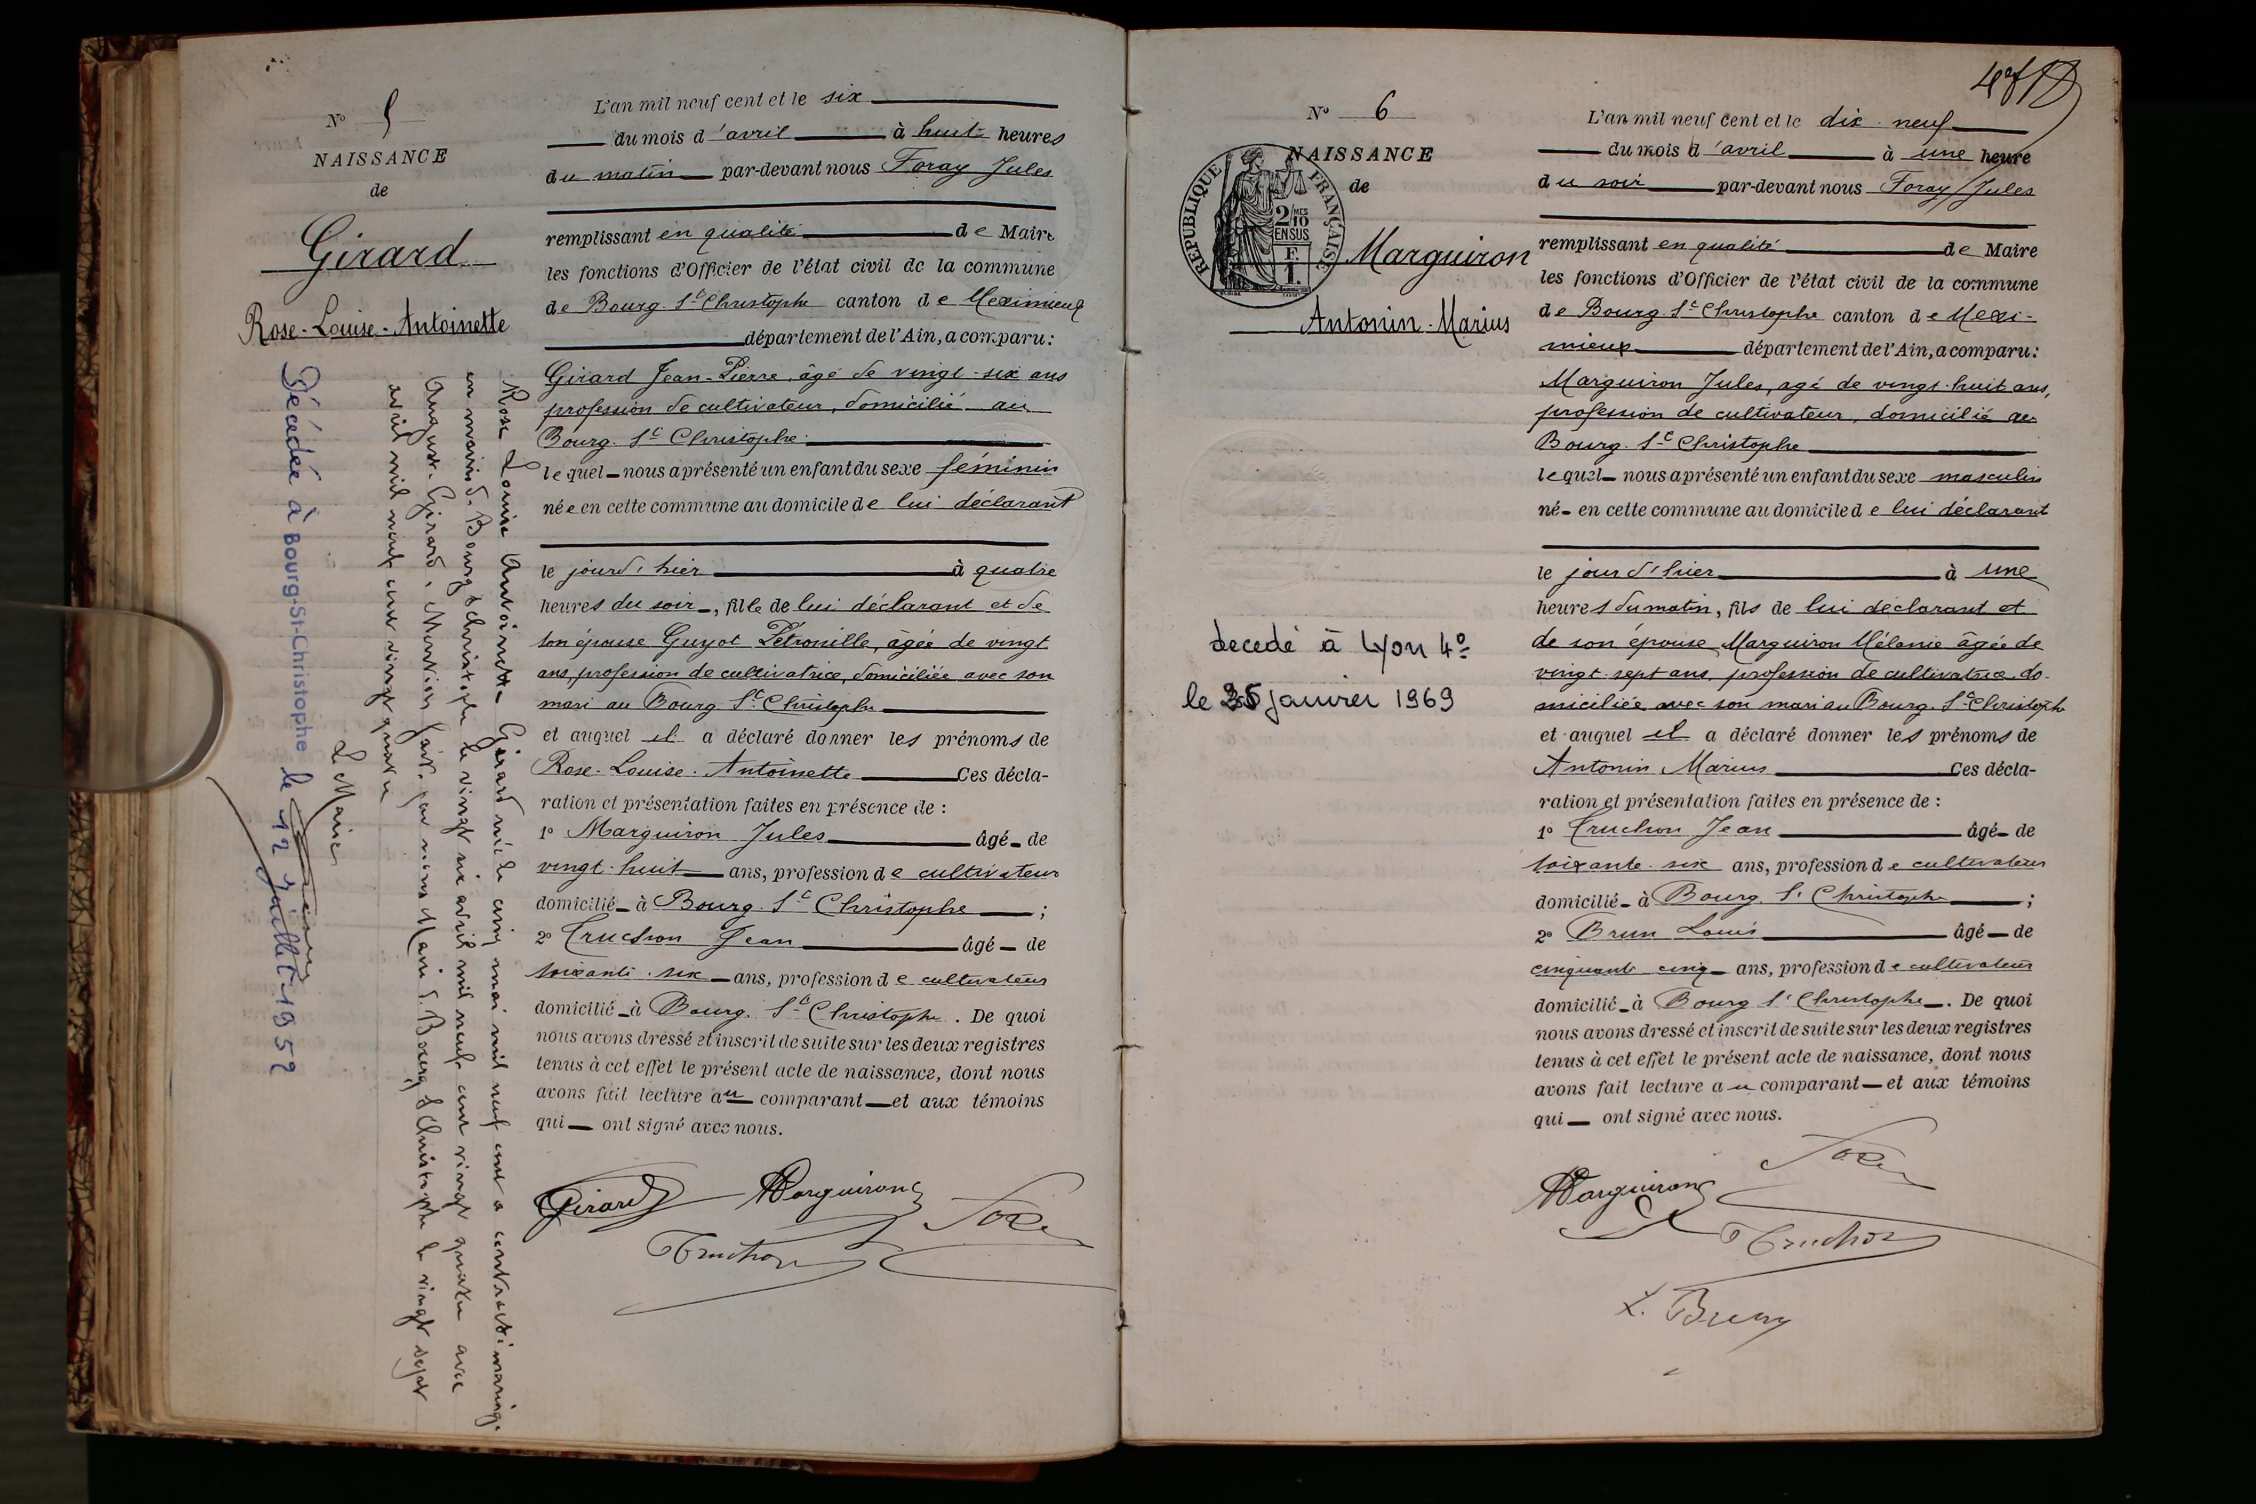 N° 5
NAISSANCE
de
Girard
Rose-Louise-Antoinette
L'an mil neuf cent et le six
du mois d'avril à huit heures
du matin par-devant nous Foray Jules
remplissant en qualité de Maire
les fonctions d'Officier de l'état civil de la commune
de Bourg-St-Christophe canton de Meximieux
département de l'Ain, a comparu:
Girard Jean-Pierre, âgé de vingt-six ans
profession de cultivateur, domicilié au
Bourg-St Christophe
lequel nous a présenté un enfant du sexe féminin
née en cette commune au domicile de lui déclarant
le jour d'hier à quatre
heures du soir, fille de lui déclarant et de
son épouse Guyot Pétronille, âgée de vingt
ans, profession de cultivatrice, domiciliée avec son
mari au Bourg St Christophe
et auquel il a déclaré donner les prénoms de
Rose-Louise-Antoinette Ces décla-
ration et présentation faites en présence de :
1° Marguiron Jules âgé de
vingt-huit ans, profession de cultivateur
domicilié à Bourg-St Christophe ;
2° Truchon Jean âgé de
soixante-six ans, profession de cultivateur
domicilié à Bourg-St Christophe. De quoi
nous avons dressé et inscrit de suite sur les deux registres
tenus à cet effet le présent acte de naissance, dont nous
avons fait lecture au comparant et aux témoins
qui ont signé avec nous.
Girard Marguiron
Truchon
Rose Louise Antoinette Girard née le cinq mai mil neuf cent a contracté mariage
en mairie de Bourg St Christophe le vingt six avril mil neuf cent vingt quatre avec
Girard. Mention faite par nous Maire de Bourg St Christophe le vingt sept
avril mil neuf cent vingt quatre
Le Maire
Décédée à Bourg-St-Christophe le 12 Juillet 1952
N° 6
NAISSANCE
de
RÉPUBLIQUE FRANÇAISE
2/10MES
EN SUS
F.
1.
Marguiron
Antonin-Marius
decedé à Lyon 4°
le 25 janvier 1969
L'an mil neuf cent et le dix-neuf
du mois d'avril à une heure
du soir par-devant nous Foray Jules
remplissant en qualité de Maire
les fonctions d'Officier de l'état civil de la commune
de Bourg-St-Christophe canton de Mexi-
mieux département de l'Ain, a comparu:
Marguiron Jules, agé de vingt-huit ans,
profession de cultivateur, domicilié au
Bourg-St Christophe
lequel nous a présenté un enfant du sexe masculin
né en cette commune au domicile de lui déclarant
le jour d'hier à une
heures du matin, fils de lui déclarant et
de son épouse Marguiron Mélanie âgée de
vingt-sept ans, profession de cultivatrice do-
miciliée avec son mari au Bourg-St-Christophe
et auquel il a déclaré donner les prénoms de
Antonin Marius Ces décla-
ration et présentation faites en présence de :
1° Truchon Jean âgé de
soixante-six ans, profession de cultivateur
domicilié à Bourg St Christophe ;
2° Brun Louis âgé de
cinquante cinq ans, profession de cultivateur
domicilié à Bourg St Christophe. De quoi
nous avons dressé et inscrit de suite sur les deux registres
tenus à cet effet le présent acte de naissance, dont nous
avons fait lecture au comparant et aux témoins
qui ont signé avec nous.
Marguiron
Truchon
L. Brun